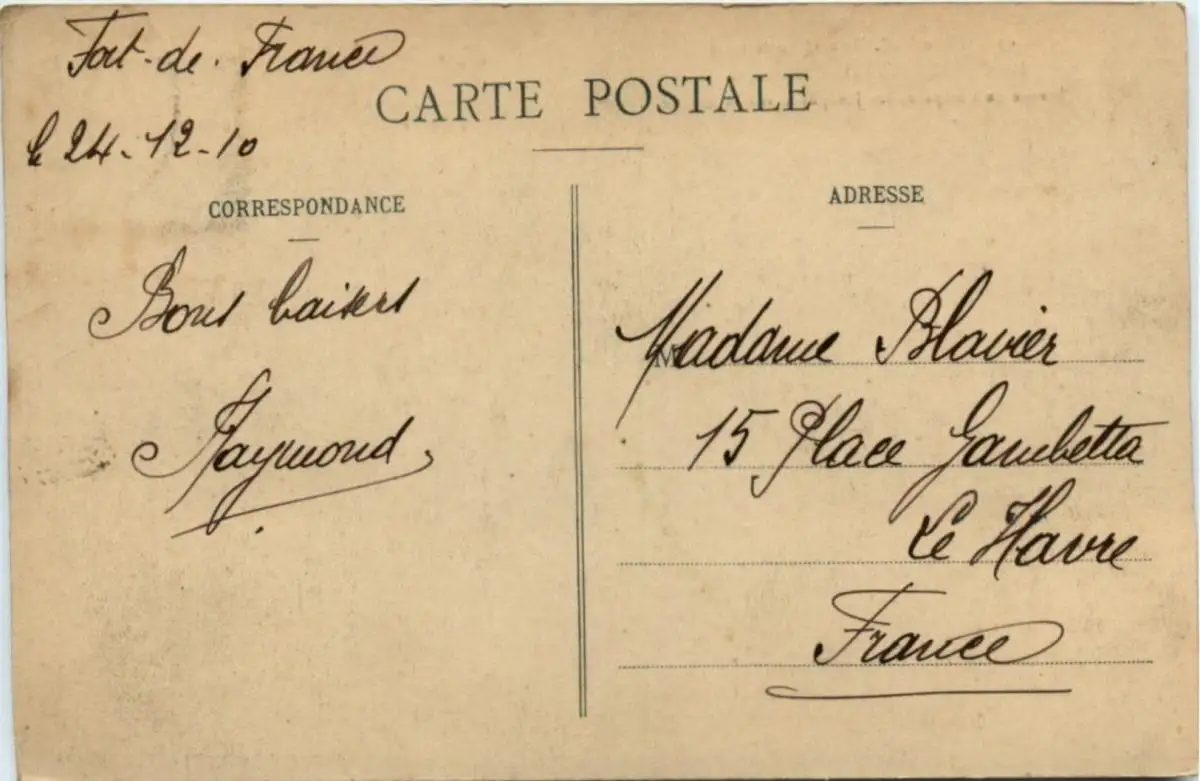 Fort-de-France
le 24-12-10
CARTE POSTALE
CORRESPONDANCE
Bons baisers
Raymond
ADRESSE
M
Madame Blavier
15 Place Gambetta
Le Havre
France